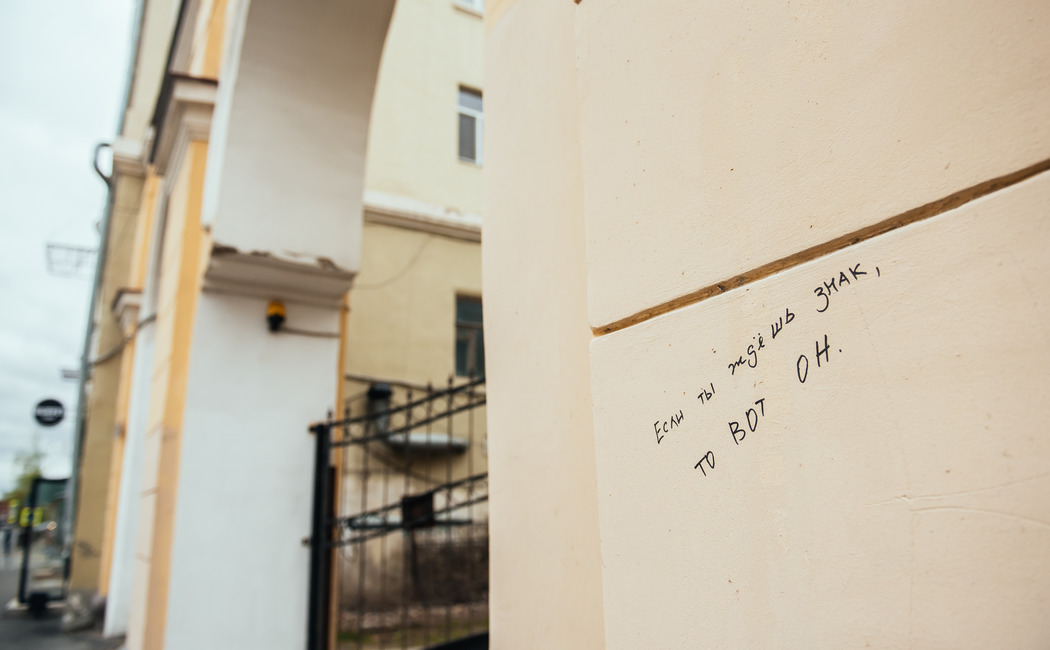 Если ты ждёшь ЗНАК,
ТО ВОТ ОН.